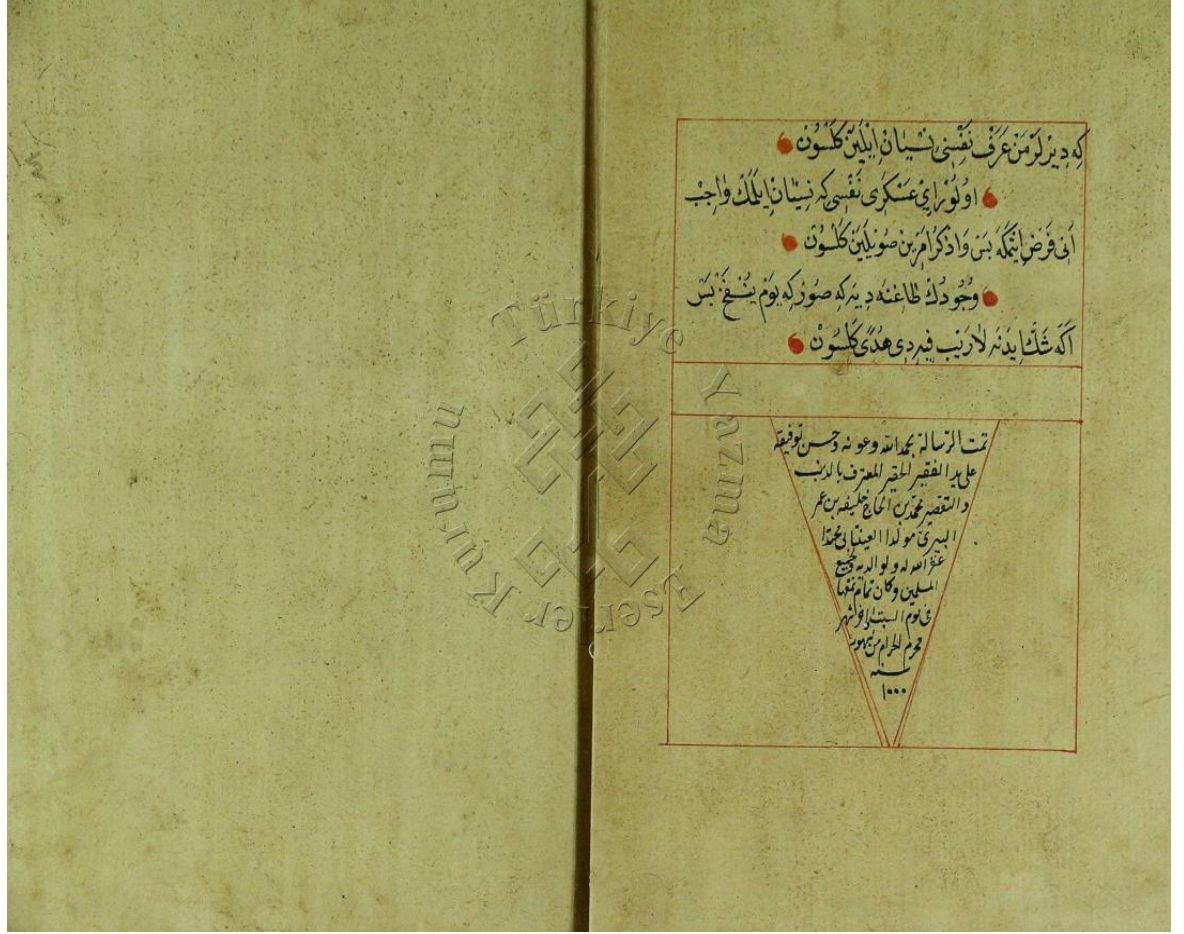 كه ديرلر من عرف نفسنى نسيان ايلين كلسون
اولور اي عسكرى نفسى كه نسيان ايلمك واجب
انى فرض ايتمكه بس واذكر امرين صويلين كلسون
وجودك طاغنه ديه كه صور كه يوم ينفخ بس
اكه شك ايدنه لاريب فيه دى هدى كلسون
تمت الرسالة بحمد الله وعونه وحسن توفيقه
على يد الفقير الحقير المعترف بالذنب
والتقصير محمد بن الحاج خليفه بن عمر
البيرى مولدا العينتابى
غفر الله له ولوالديه ولجميع
المسلمين وكان تمام نمقها
فى يوم السبت شهر
محرم الحرام من شهور
سنه
١٠٠٠
Türkiye Yazma Eserler Kurumu